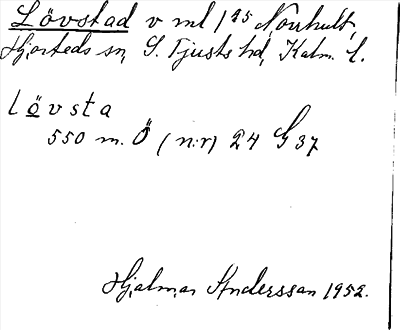 Lövstad v ml 1²⁵ Norrhult,
Hjorteds sn, S. Tjusts hd, Kalm. l.
lövsta
550 m. Ö (n:r) 24 G 37
Hjalmar Anderssan 1952.